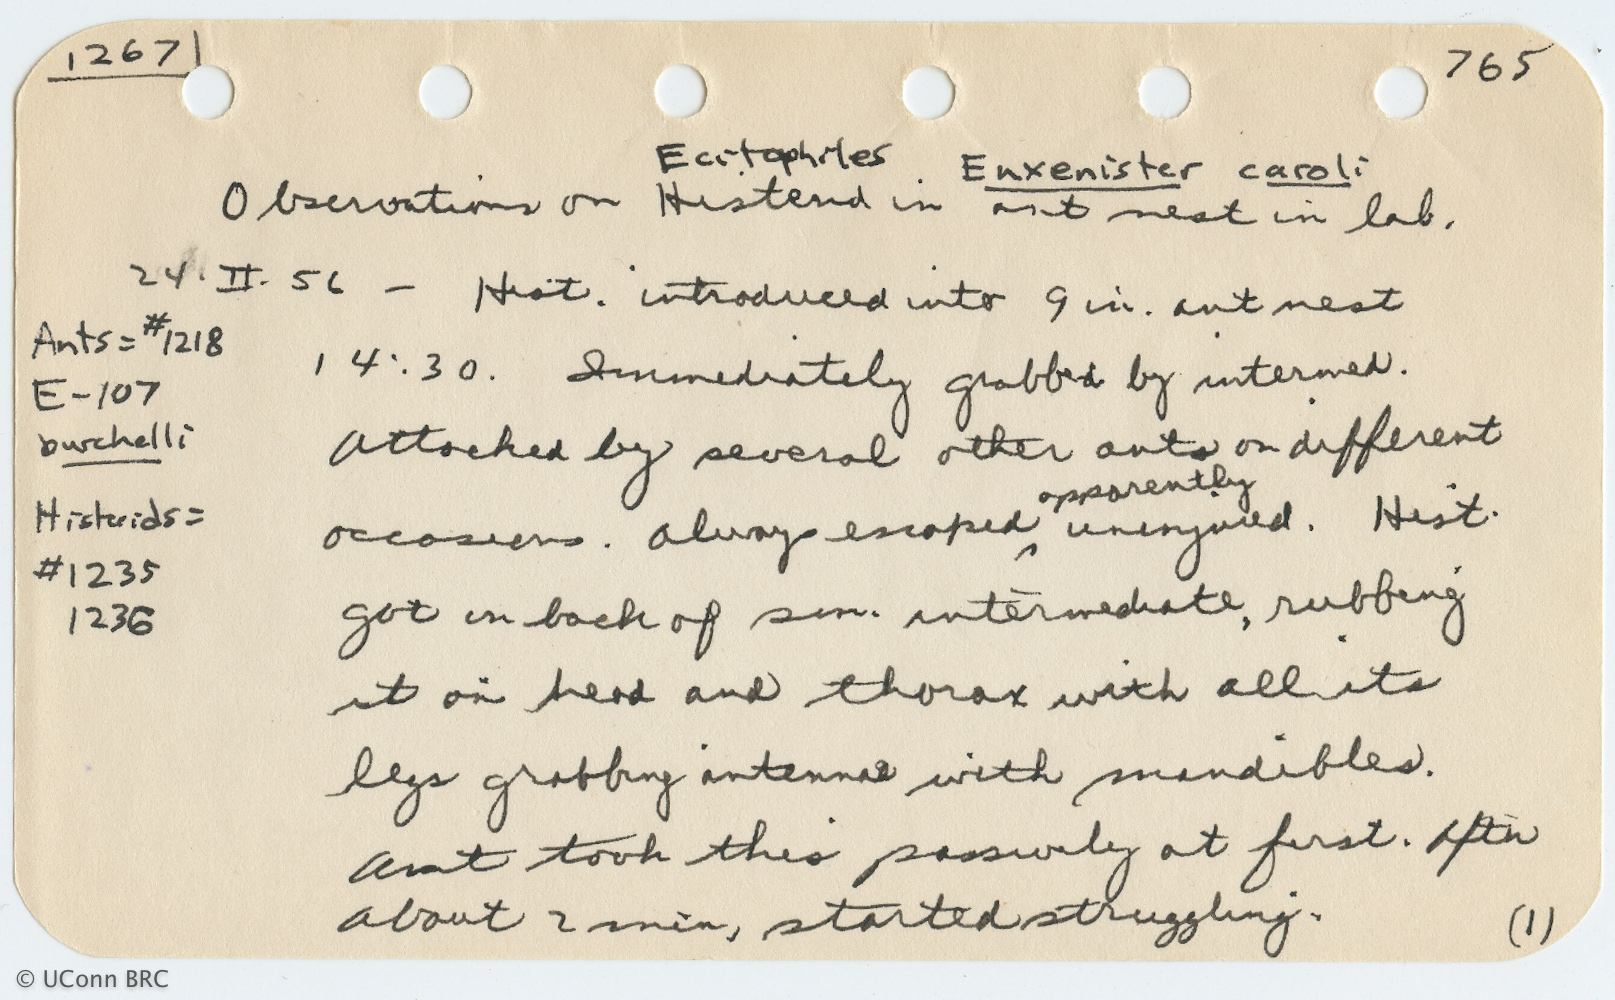 1267
765
Ecitophiles Euxenister caroli
Observations on Histerid in ant nest in lab.
24.II.56 — Hist. introduced into 9 in. ant nest
Ants = #1218
14:30. Immediately grabbed by intermed.
E-107
burchelli
Attacked by several other ants on different
apparently
Histerids =
occasions. Always escaped ^ uninjured. Hist.
#1235
1236
got on back of sm. intermediate, rubbing
it on head and thorax with all its
legs grabbing antennae with mandibles.
Ant took this passively at first. After
about 2 min, started struggling.
(1)
© UConn BRC